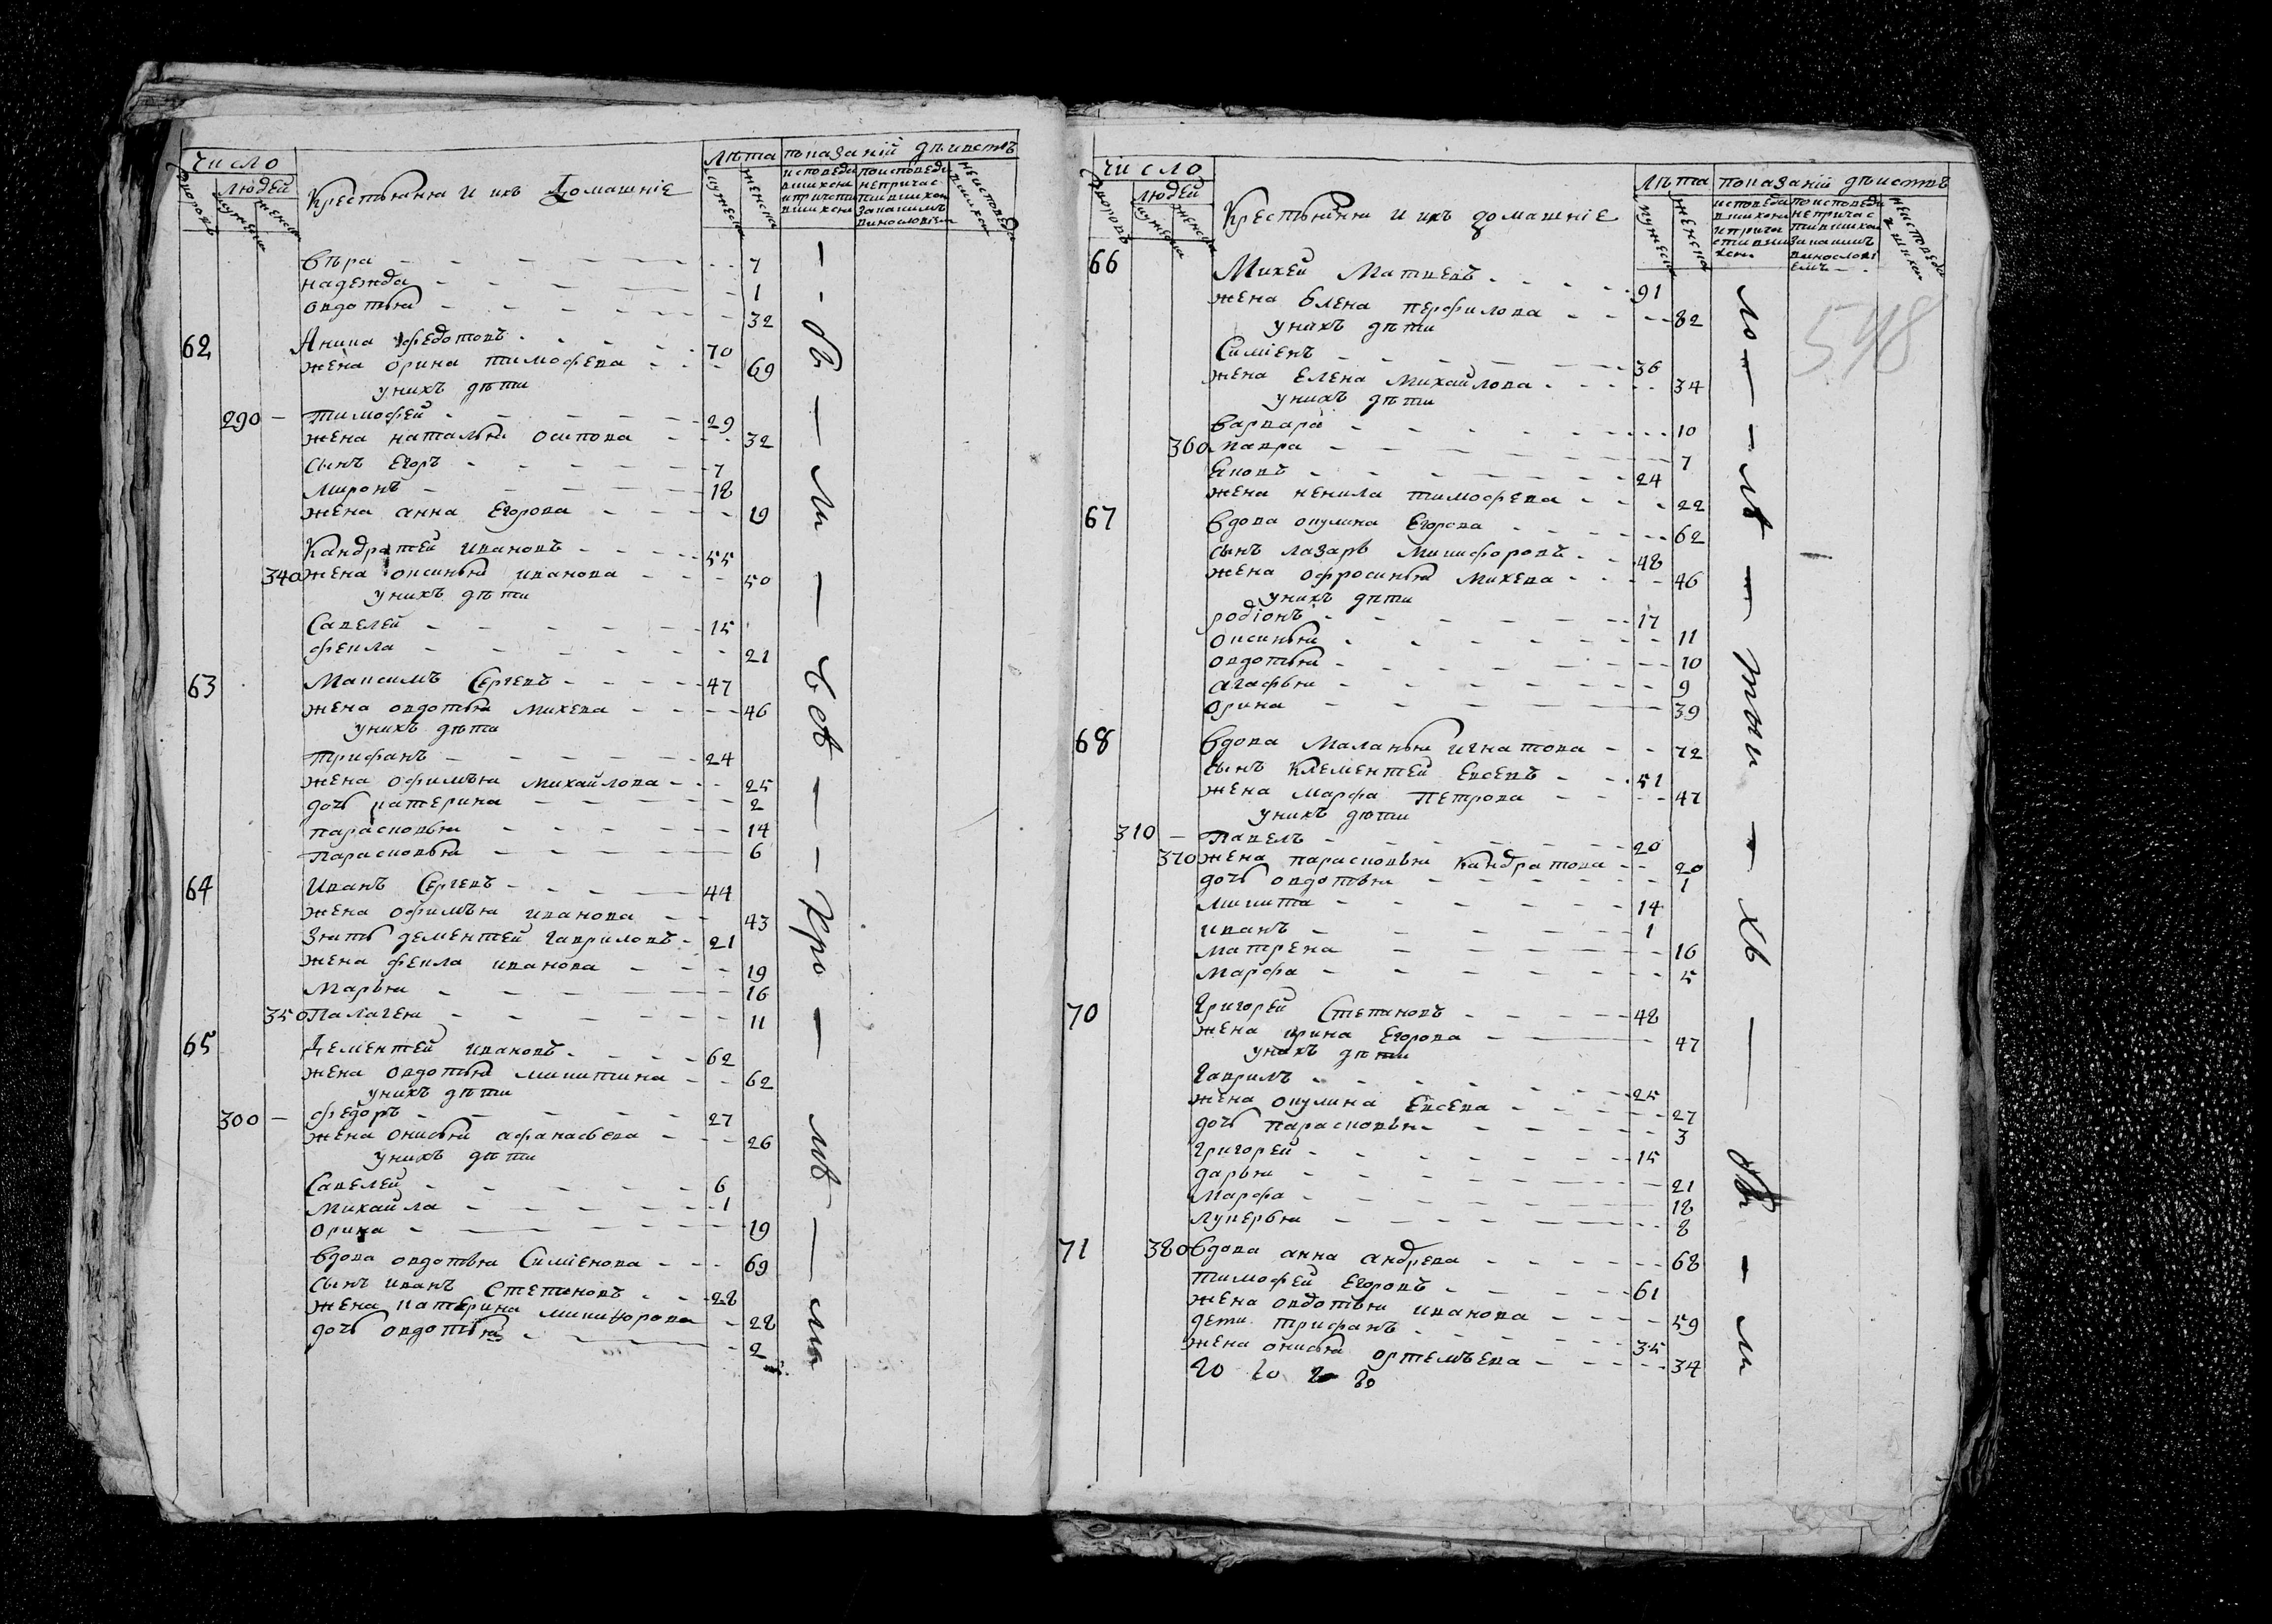 число
Лѣта показаній дѣиствъ
дворовъ
людей
мужеска
женска
Крестьяння и ихъ Домашнїе
мужеска
женска
исповеда
вшихся
и причасти
вшихся
поисповеда
непричас
тившихся
Запакимъ
винословїем
неисповеда
вшихся
Вѣра 7
надежда 1
овдотья 32
62 Аника федотовъ 70
жена орина тимофеева 69
унихъ дѣти
290 тимофей 29
жена наталья осипова 32
сынъ Егоръ 7
миронъ 18
жена анна Егорова 19
Кандратей ивановъ 55
340 жена оксинья иванова 50
унихъ дѣти
Савелей 15
фекла 21
63 Максимъ Сергевъ 47
жена овдотья михева 46
унихъ дѣти
трифанъ 24
жена офимья михайлова 25
дочь катерина 2
парасковья 14
парасковья 6
64 Иванъ Сергевъ 44
жена офимья иванова 43
Зять дементей гавриловъ 21
жена фекла иванова 19
марья 16
350 палагея 11
65 Дементей ивановъ 62
жена овдотья микитина 62
унихъ дѣти
300 федоръ 27
жена онисья афанасьева 26
унихъ дѣти
Савелей 6
михайла 1
орина 19
вдова овдотья Симїенова 69
сынъ иванъ Степановъ 28
жена катерина микифорова 28
дочь овдотья 2
число
Лѣта показаній дѣиствъ
дворовъ
людей
мужеска
женска
Крестьяння и ихъ домашнїе
мужеска
женска
исповеда
вшихся
и прича
стивши
хся
поисповеда
непричас
тившихся
Запакимъ
винословї
емъ
неисповеда
вшихся
548
66 Михей Матвевъ 91
жена Елена перфилова 82
унихъ дѣти
Симїенъ 36
жена Елена Михайлова 34
унихъ дѣти
варвара 10
360 мавра 7
Яковъ 24
жена ненила тимофева 22
67 вдова окулина Егорова 62
сынъ лазарь Микифоровъ 48
жена офросинья Михева 46
унихъ дѣти
родїонъ 17
оксинья 11
овдотья 10
агафья 9
орина 39
68 вдова Маланья игнатова 72
сынъ Клементей Евсевъ 51
жена марфа Петрова 47
унихъ дѣти
310 Павелъ 20
370 жена парасковья Кандратова 20
дочь овдотья 1
микита 14
иванъ 1
матрена 16
марфа 5
70 Григорей Степановъ 48
жена ирина Егорова 47
унихъ дѣти
гаврилъ 25
жена окулина Евсева 27
дочь парасковья 3
григорей 15
дарья 21
марфа 18
лукерья 8
71 380 вдова анна андрева 68
тимофей Егоровъ 61
жена овдотья иванова 59
дети трифанъ 35
жена онисья ортемъева 34